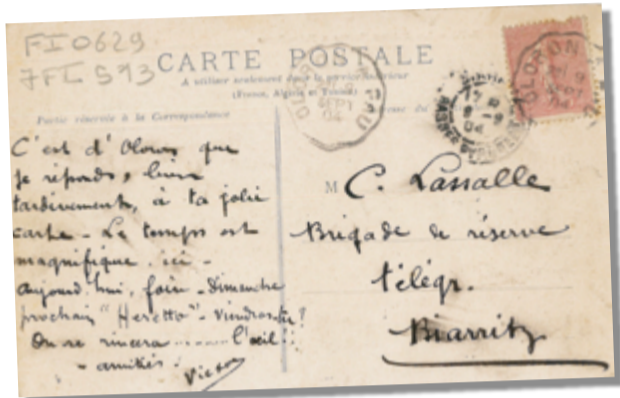 FI0629
7FI 593
CARTE POSTALE
A utiliser seulement dans le service intérieur
(France, Algérie et Tunisie)
Partie réservée à la Correspondance
Adresse du
C'est d' Oloron que
je réponds, bien
tardivement, à ta jolie
carte - Le temps est
magnifique ici -
aujourd'hui, foire - Dimanche
prochain "Heretto" - Viendras-tu?
On se rincera ...... l'œil!!
- amitiés -
Victor
M C. Lassalle
Brigade de réserve
télégr.
Biarritz
OLORON
PAU
SEPT
04
OLORON
9
04
17
8 - 9
04